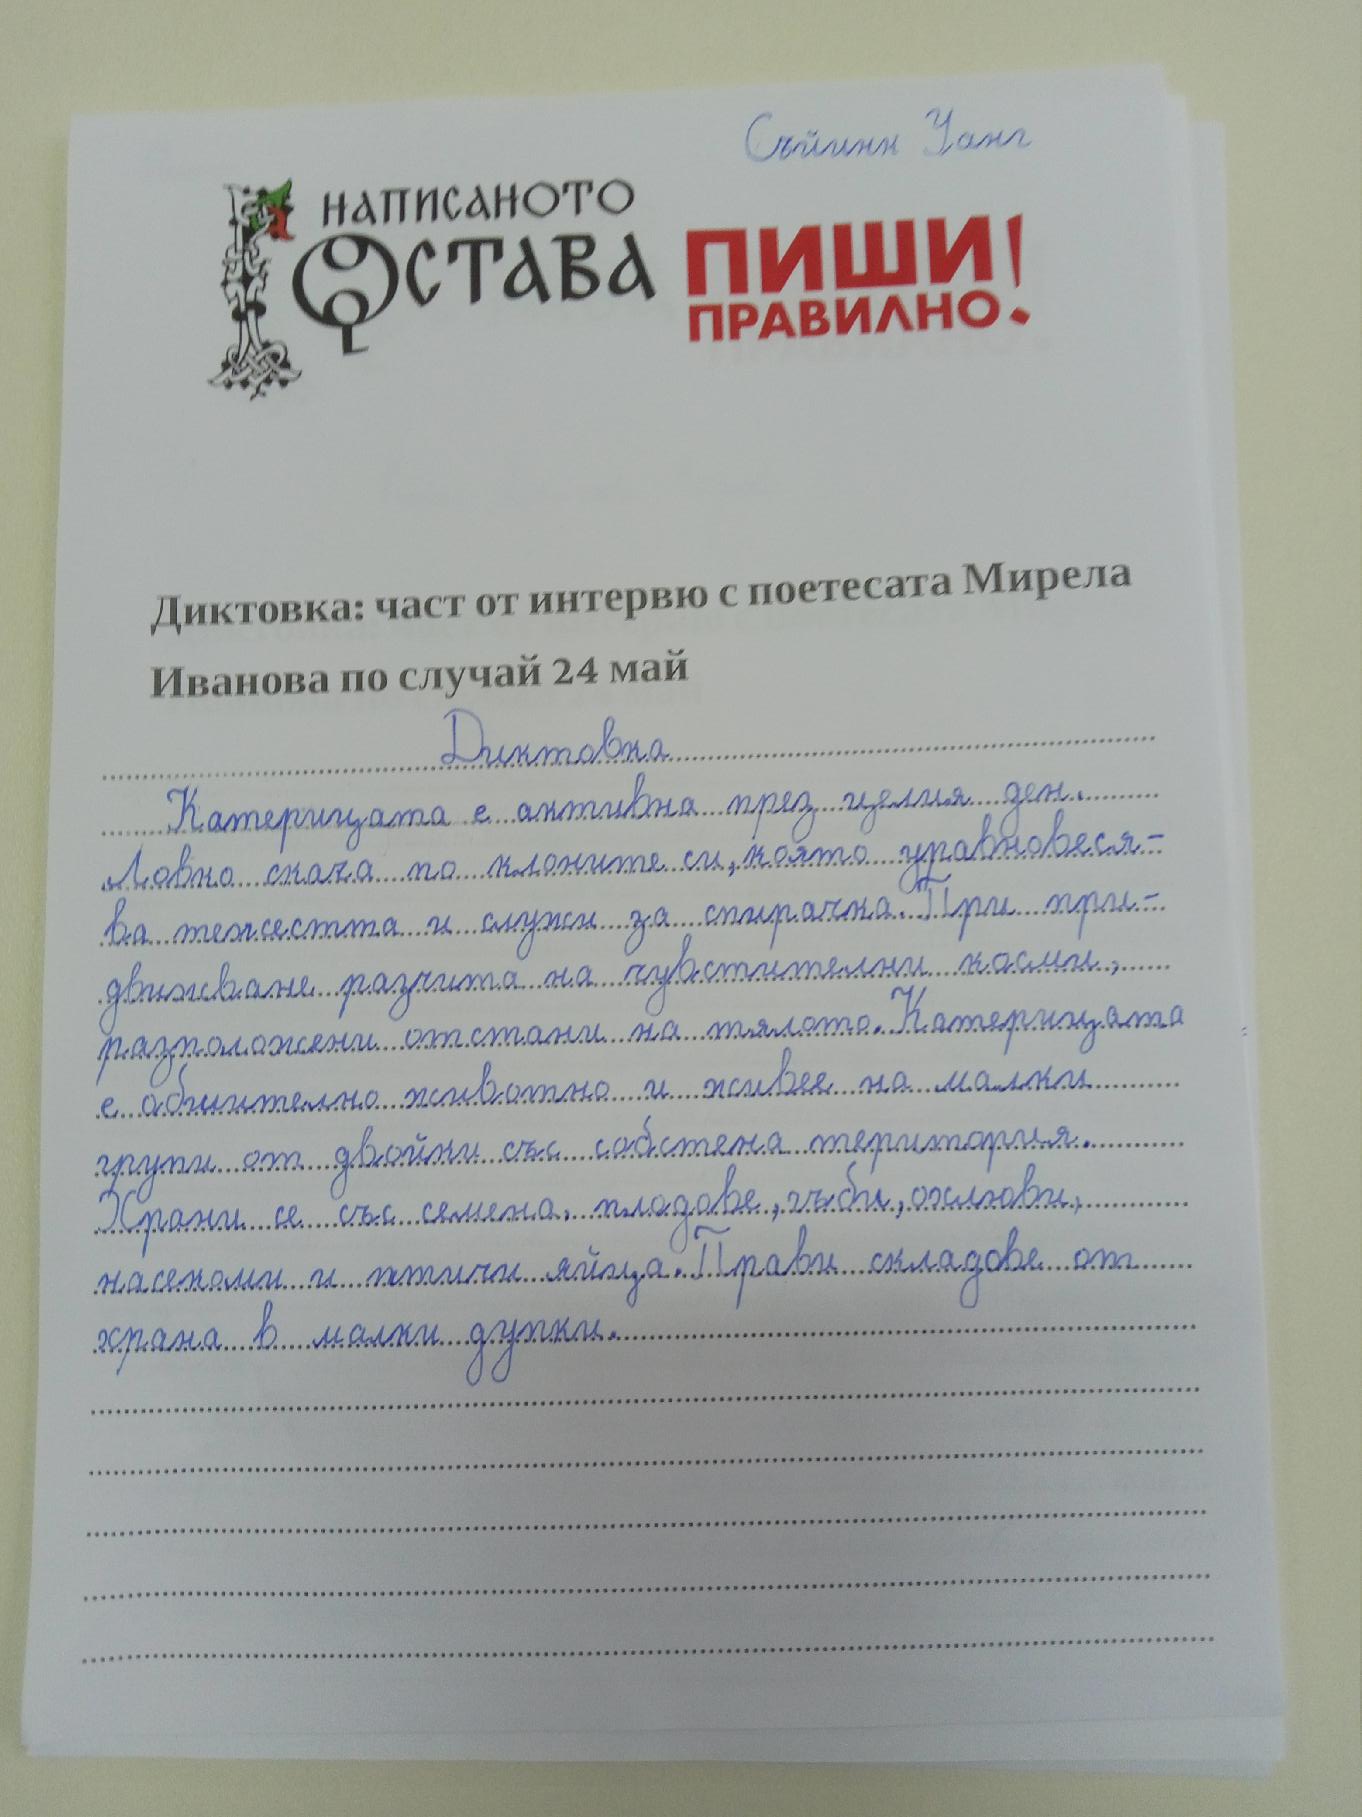 Съйинн Уанг
НАПИСАНОТО
ОСТАВА
ПИШИ
ПРАВИЛНО!
Диктовка: част от интервю с поетесата Мирела
Иванова по случай 24 май
Диктовка
Катерицата е активна през целия ден.
Ловко скача по клоните си, която уравновеся-
ва тежестта и служи за спирачка. При при-
движване разчита на чувстителни косми,
разположени отстани на тялото. Катерицата
е общително животно и живее на малки
групи от двойки със собстена територия.
Храни се със семена, плодове, гъби, охлюви,
насекоми и птичи яйца. Прави складове от
храна в малки дупки.